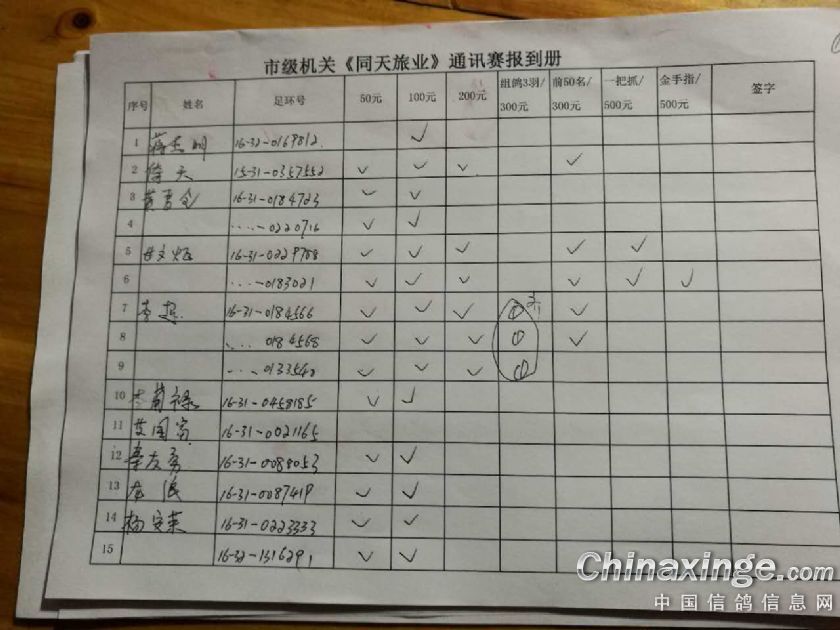 市级机关《同天旅业》通讯赛报到册
序号 姓名 足环号 50元 100元 200元 组鸽3羽/300元 前50名/300元 一把抓/500元 金手指/500元 签字
1 16-32-0169812 ✓
2 倚天 15-31-0357552 ✓ ✓ ✓ ✓
3 16-31-0184723 ✓ ✓
4 ....-0220716 ✓ ✓
5 16-31-0229788 ✓ ✓ ✓ ✓ ✓
6 ....-0183021 ✓ ✓ ✓ ✓ ✓ ✓
7 16-31-0184566 ✓ ✓ ✓ ① ✓
8 .... 0184568 ✓ ✓ ✓ ① ✓
9 ....0133540 ✓ ✓ ✓ ①
10 16-31-0458185 ✓ ✓
11 艾国富 16-31-0021165
12 秦友勇 16-31-0088053 ✓ ✓
13 龙浪 16-31-0087419 ✓ ✓
14 杨安荣 16-31-0223333 ✓ ✓
15 16-32-1316291 ✓ ✓
Chinaxinge.com
中国信鸽信息网